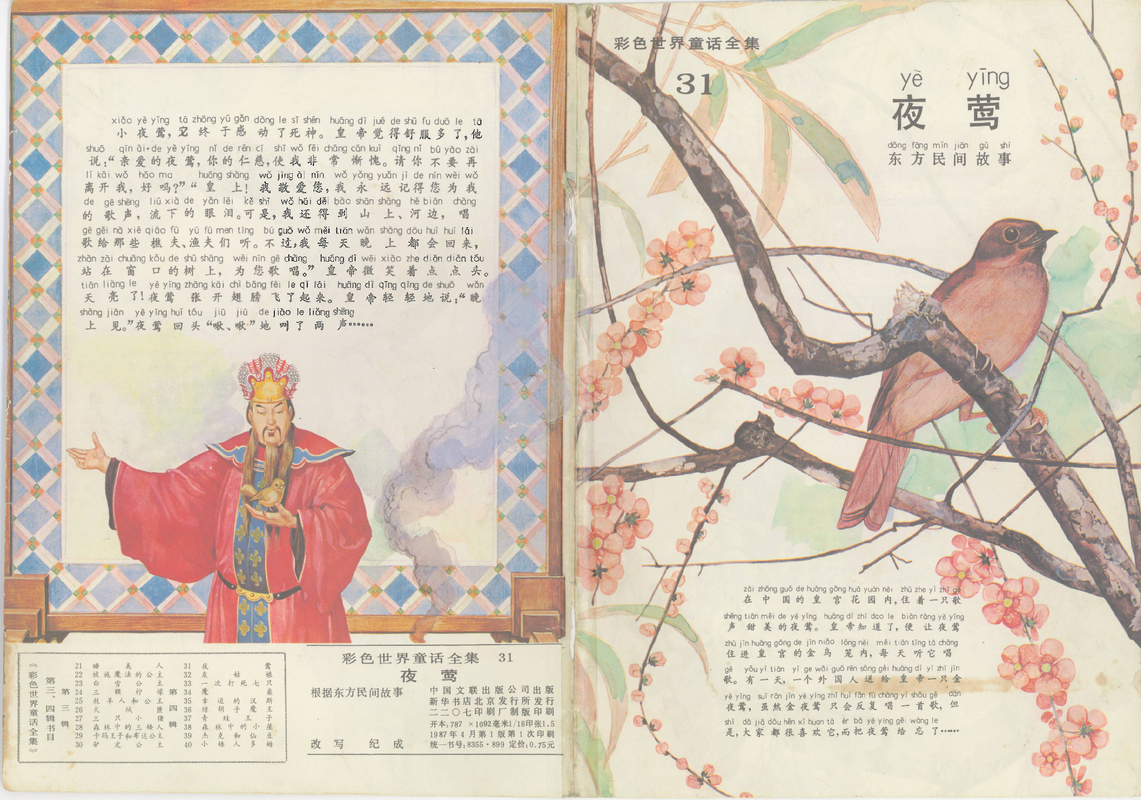 xiǎo yè yīng tā zhōng yú gǎn dòng le sǐ shén huáng dì jué de shū fu duō le tā
小夜莺,它终于感动了死神。皇帝觉得舒服多了,他
shuō qīn ài de yè yīng nǐ de rén cí shǐ wǒ fēi cháng cán kuì qǐng nǐ bú yào zài
说:“亲爱的夜莺,你的仁慈,使我非常惭愧。请你不要再
lí kāi wǒ hǎo ma huáng shàng wǒ jìng ài nín wǒ yǒng yuǎn jì de nín wèi wǒ
离开我,好吗?”“皇上!我敬爱您,我永远记得您为我
de gē shēng liú xià de yǎn lèi kě shì wǒ hái děi dào shān shàng hé biān chàng
的歌声,流下的眼泪。可是,我还得到山上、河边,唱
gē gěi nà xiē qiáo fū yú fū men tīng bú guò wǒ měi tiān wǎn shàng dōu huì huí lái
歌给那些樵夫、渔夫们听。不过,我每天晚上都会回来,
zhàn zài chuāng kǒu de shù shàng wèi nín gē chàng huáng dì wēi xiào zhe diǎn diǎn tóu
站在窗口的树上,为您歌唱。”皇帝微笑着点点头。
tiān liàng le yè yīng zhāng kāi chì bǎng fēi le qǐ lái huáng dì qīng qīng de shuō wǎn
天亮了!夜莺张开翅膀飞了起来。皇帝轻轻地说:“晚
shàng jiàn yè yīng huí tóu jiū jiū de jiào le liǎng shēng
上见。”夜莺回头“啾、啾”地叫了两声……
《彩色世界童话全集》
第三、四辑书目
第三辑
21 睡美人
22 被施魔法的公主
23 白雪公主
24 三颗柠檬
25 牧羊人和公主
26 火绒匣
27 三只小猪
28 森林中的三矮人
29 卡玛王子和布达公主
30 驴皮公主
第四辑
31 夜莺
32 灰姑娘
33 一次打死七只
34 魔桌
35 幸运的汉斯
36 绿胡子魔王
37 青蛙王子
38 森林中的小屋
39 杰克和仙豆
40 小矮人多姆
彩色世界童话全集 31
夜莺
根据东方民间故事
改写 纪成
中国文联出版公司出版
新华书店北京发行所发行
二二〇七印刷厂制版印刷
开本,787×1092毫米1/16印张1.5
1987年4月第1版第1次印刷
统一书号:8355·899 定价:0.75元
彩色世界童话全集
31
yè yīng
夜莺
dōng fāng mín jiān gù shi
东方民间故事
zài zhōng guó de huáng gōng huā yuán nèi zhù zhe yì zhī gē
在中国的皇宫花园内,住着一只歌
shēng tián měi de yè yīng huáng dì zhī dào le biàn ràng yè yīng
声甜美的夜莺。皇帝知道了,便让夜莺
zhù jìn huáng gōng de jīn niǎo lóng nèi měi tiān tīng tā chàng
住进皇宫的金鸟笼内,每天听它唱
gē yǒu yì tiān yí ge wài guó rén sòng gěi huáng dì yì zhī jīn
歌。有一天,一个外国人送给皇帝一只金
yè yīng suī rán jīn yè yīng zhǐ huì fǎn fù chàng yì shǒu gē dàn
夜莺,虽然金夜莺只会反复唱一首歌,但
shì dà jiā dōu hěn xǐ huan tā ér bǎ yè yīng gěi wàng le
是,大家都很喜欢它,而把夜莺给忘了……